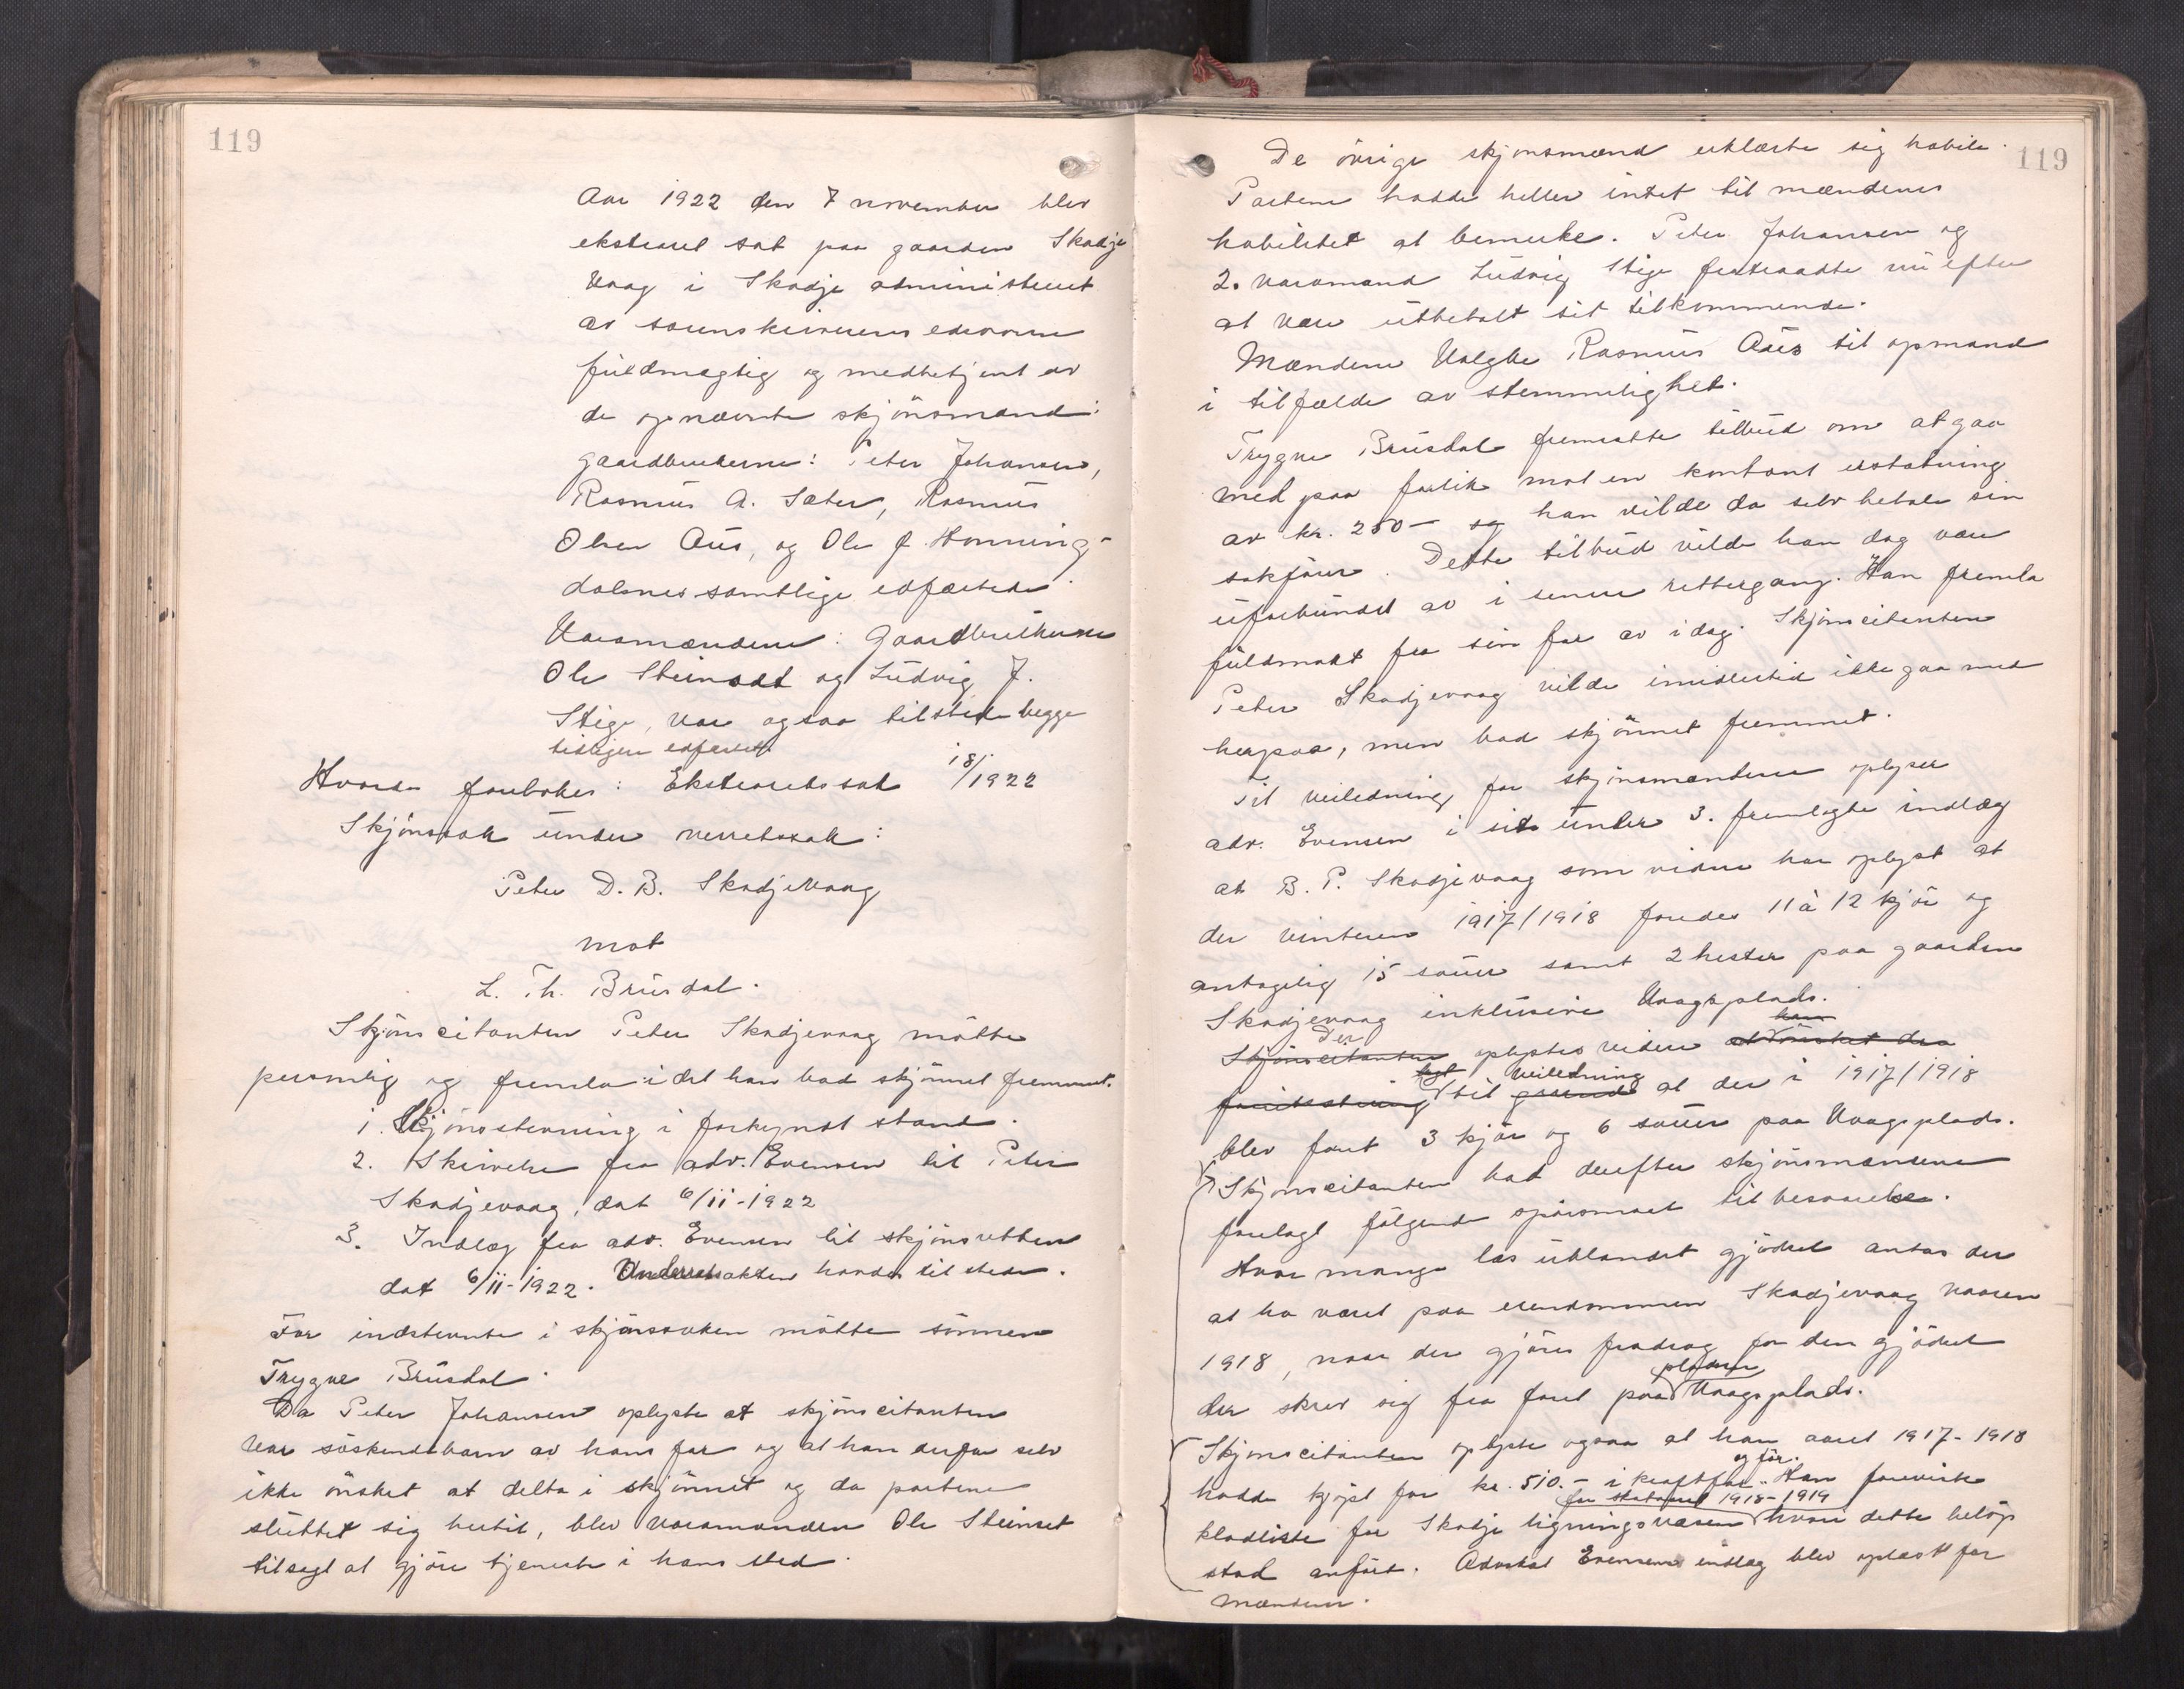 119
Aar 1922 den 7 november blev
ekstraret sat paa gaarden Skodje
Vaag i Skodje administreret
av sorenskriverens edsvorne
fuldmægtig og medbetjent av
de opnævnte skjönsmænd:
gaardbrukerne: Peter Johansen,
Rasmus A. Sæter, Rasmus
Olsen Aus, og Ole J. Honning-
dalsnes samtlige edfæstede.
Varamændene: Gaardbrukerne
Ole Steinset og Ludvig J.
Stige, var ogsaa tilstede begge
tidligere edfæstet.
Hvorda foretokes: Ekstraretssak 18/1922
Skjönssak under verretssak:
Peter D. B. Skodjevaag
mot
L. Th. Brusdal.
Skjönscitanten Peter Skodjevaag mötte
personlig og fremla idet han bad skjönnet fremmet.
1. Skjönsstevning i forkyndt stand.
2. Skrivelse fra adv. Evensen til Peter
Skodjevaag, dat 6/11-1922
3. Indlæg fra adv. Evensen til skjönsretten
dat 6/11-1922. Underretsakten havdes tilstede.
For indstevnte i skjönssaken mötte sönnen
Trygve Brusdal.
Da Peter Johansen oplyste at skjönscitanten
var söskendebarn av hans far og at han derfor selv
ikke önsket at delta i skjönnet og da partene
sluttet sig hertil, blev varamanden Ole Steinset
tilsagt at gjöre tjeneste i hans sted.
119
De övrige skjönsmænd erklærte sig habile.
Partene hadde heller intet til mændenes
habilitet at bemerke. Peter Johansen og
2. varamand Ludvig Stige fratraadte nu efter
at være utbetalt sit tilkommende.
Mændene valgte Rasmus Aus til opmand
i tilfælde av stemmelighet.
Trygve Brusdal fremsatte tilbud om at gaa
med paa forlik mot en kontant erstatning
av kr. 250- og han vilde da selv betale sin
sakförer. Dette tilbud vilde han dog være
uforbundet av i senere rettergang. Han fremla
fuldmakt fra sin far av idag. Skjönscitanten
Peter Skodjevaag vilde imidlertid ikke gaa med
herpaa, men bad skjönnet fremmet.
Til veiledning for skjönsmændene oplyser
adv. Evensen i sit under 3. fremlagte indlæg
at B. P. Skodjevaag som vidne har oplyst at
der vinteren 1917/1918 foredes 11 à 12 kjör og
antagelig 15 sauer samt 2 hester paa gaarden
Skodjevaag inklusive Vaagsplads.
Skjönscitanten Der oplystes videre at han önsket den
forutsetning lagt til grund veiledning at der i 1917/1918
blev foret 3 kjör og 6 sauer paa Vaagsplads.
Skjönscitanten bad derefter skjönsmændene
forelagt fölgende spörsmaal til besvarelse.
Hvor mange læs ublandet gjödsel antas der
at ha været paa eiendommen Skodjevaag vaaren
1918, naar der gjöres fradrag for den gjödsel
der skrev sig fra foret paa pladsen Vaagsplads.
Skjönscitanten oplyste ogsaa at han aaret 1917-1918
hadde kjöpt for kr. 510.- i kraftfor ogför. Han foreviste
kladliste for Skodje ligningsvæsen for skataaret 1918-1919 hvori dette belöp
stod anfört. Advokat Evensens indlæg blev oplæst for
mændene.